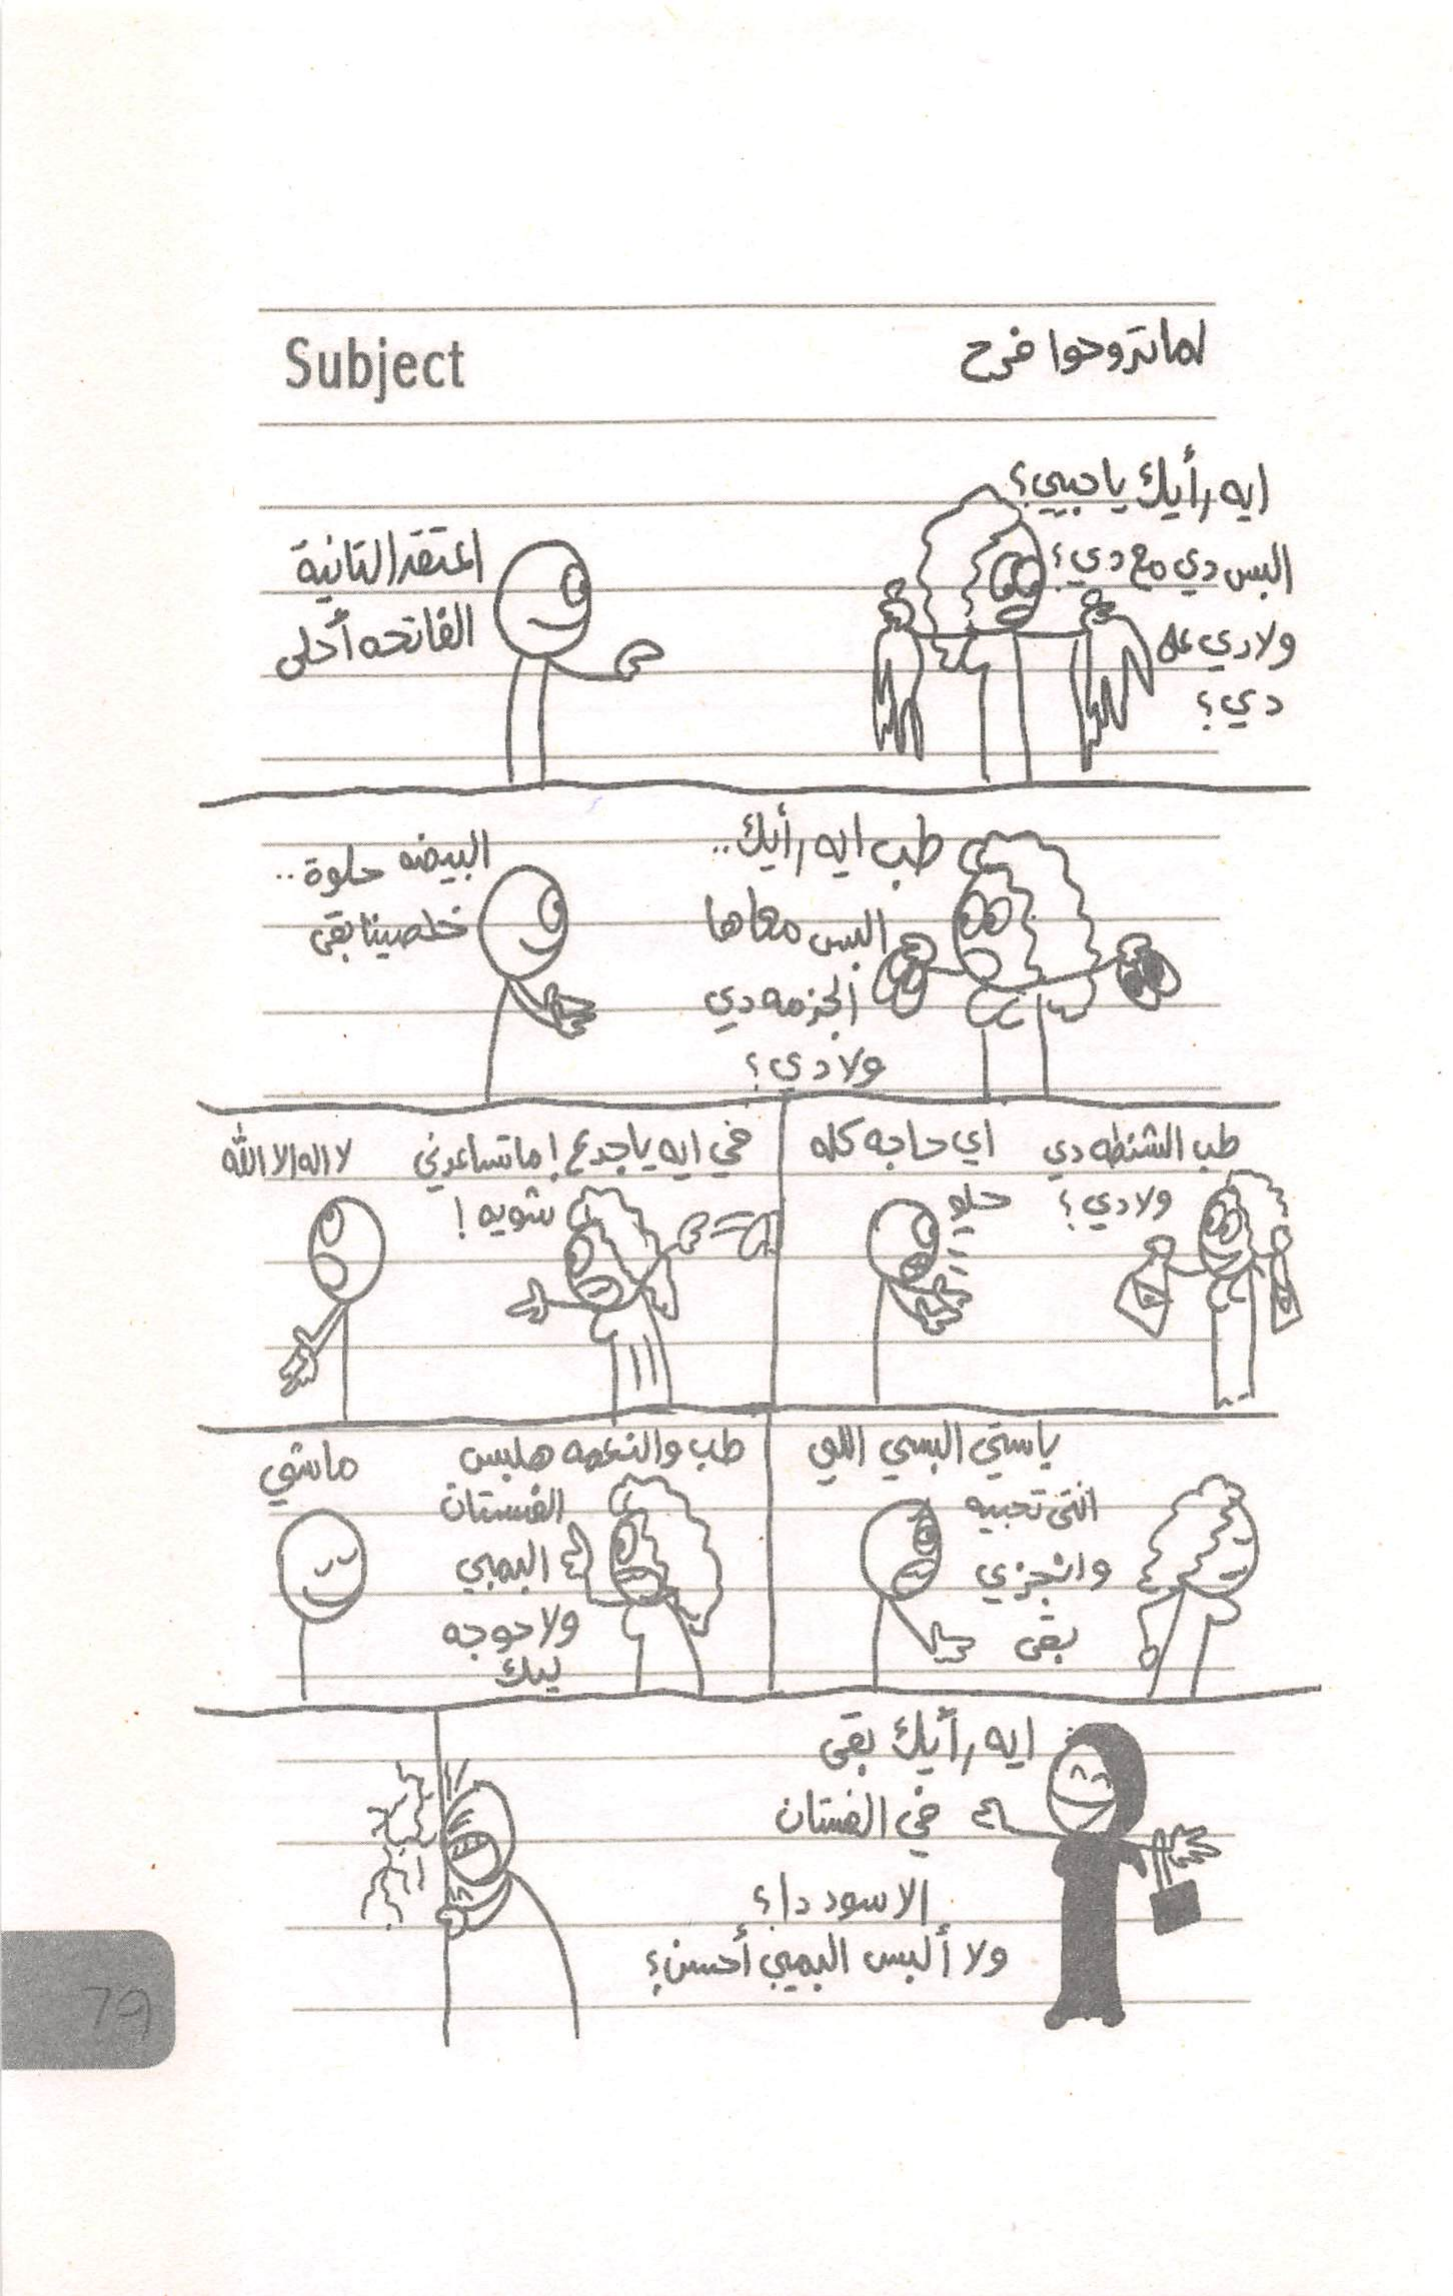 Subject
لما تروحوا فرح
ايه رأيك يا حبيبي؟
البس دي مع دي؟
ولا دي علـ
دي؟
اعتقد التانية
الفاتحه أحلى
طب ايه رأيك..
البس معاها
الجزمه دي
ولا دي؟
البيضه حلوة..
خلصينا بقى
طب الشنطه دي
ولا دي؟
اي حاجه كله
حلو
في ايه يا جدع! ما تساعدني
شويه!
لا اله الا الله
ياستي البسي اللي
انتى تحبيه
وانجزي
بقى
طب والنعمه هلبس
الفستان
البمبي
ولا حوجه
ليك
ماشي
ايه رأيك بقى
في الفستان
الاسود دا؟
ولا ألبس البمبي أحسن؟
79